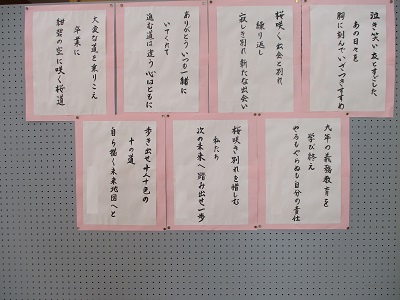 泣き笑い友とすごした
あの日々を
胸に刻んでいざつきすすめ
桜咲く出会と別れ
繰り返し
寂しき別れ新たな出会い
ありがとういつも一緒に
いてくれて
進む道は違う心はともに
大変な道を乗りこえ
卒業に
紺碧の空に咲く桜道
九年の義務教育を
学び終え
やるもやらぬも自分の責任
桜咲き別れを惜しむ
私たち
次の未来へ踏み出せ一歩
歩き出せ十人十色の
十の道
自ら描く未来地図へと